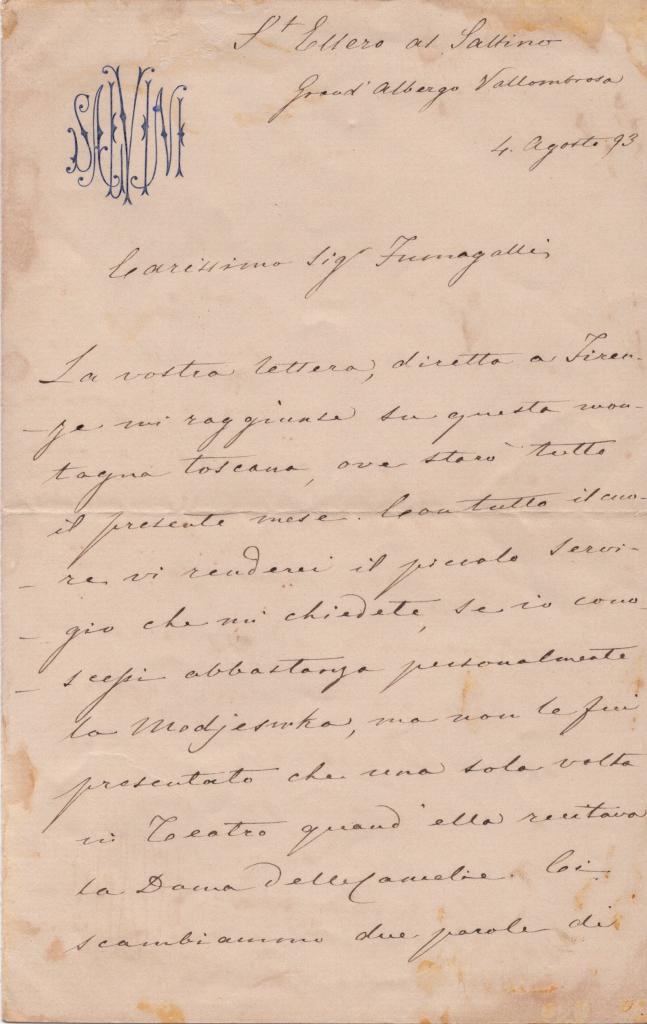 St Ellero al Saltino
Grand' Albergo Vallombrosa
4. Agosto 93
SALVINI
Carissimo Sigr Fumagalli,
La vostra lettera, diretta a Firen-
-ze mi raggiunse su questa mon-
tagna toscana, ove starò tutto
il presente mese. Con tutto il cuo-
-re vi renderei il piccolo servi-
-gio che mi chiedete, se io cono-
-scessi abbastanza personalmente
la Modjeswka, ma non le fui
presentato che una sola volta
in Teatro quand' ella recitava
la Dama delle Camelie. Ci
scambiammo due parole di